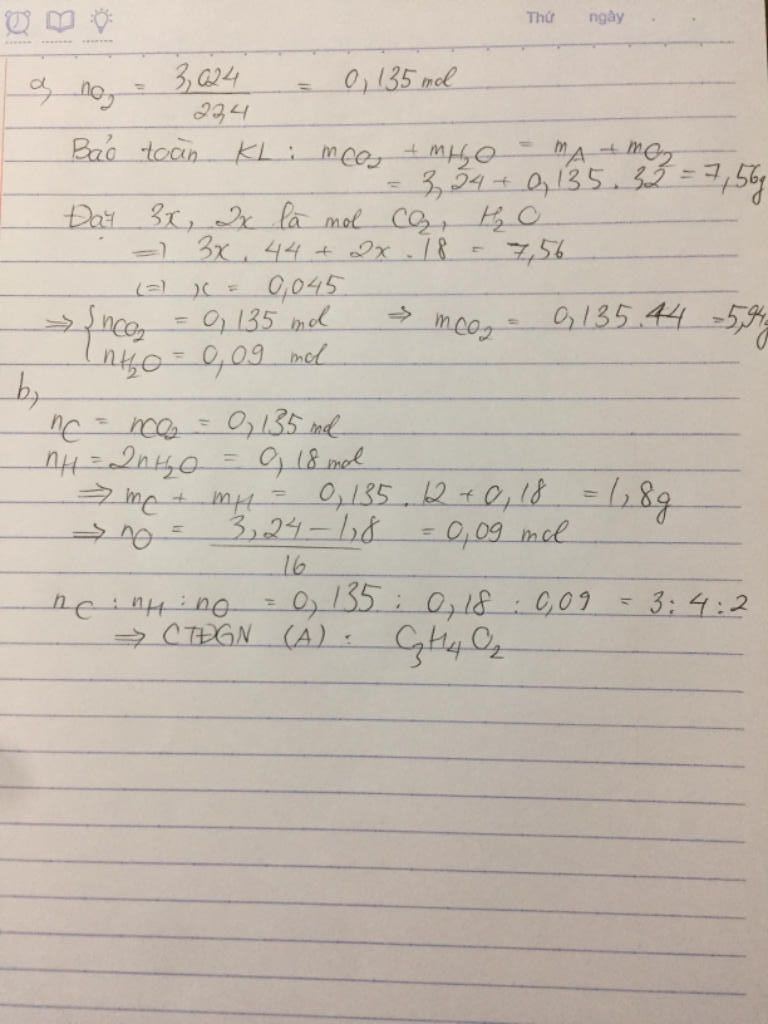 Thứ ngày . .
a, nO₂ = 3,024 / 22,4 = 0,135 mol
Bảo toàn KL : mCO₂ + mH₂O = mA + mO₂
= 3,24 + 0,135 . 32 = 7,56g
Đặt 3x, 2x là mol CO₂, H₂O
=) 3x . 44 + 2x . 18 = 7,56
(=) x = 0,045
⇒ { nCO₂ = 0,135 mol ⇒ mCO₂ = 0,135.44 = 5,94g
nH₂O = 0,09 mol
b,
nC = nCO₂ = 0,135 mol
nH = 2nH₂O = 0,18 mol
⇒ mC + mH = 0,135 . 12 + 0,18 = 1,8g
⇒ nO = 3,24 – 1,8 / 16 = 0,09 mol
nC : nH : nO = 0,135 : 0,18 : 0,09 = 3 : 4 : 2
⇒ CTĐGN (A) : C₃H₄O₂